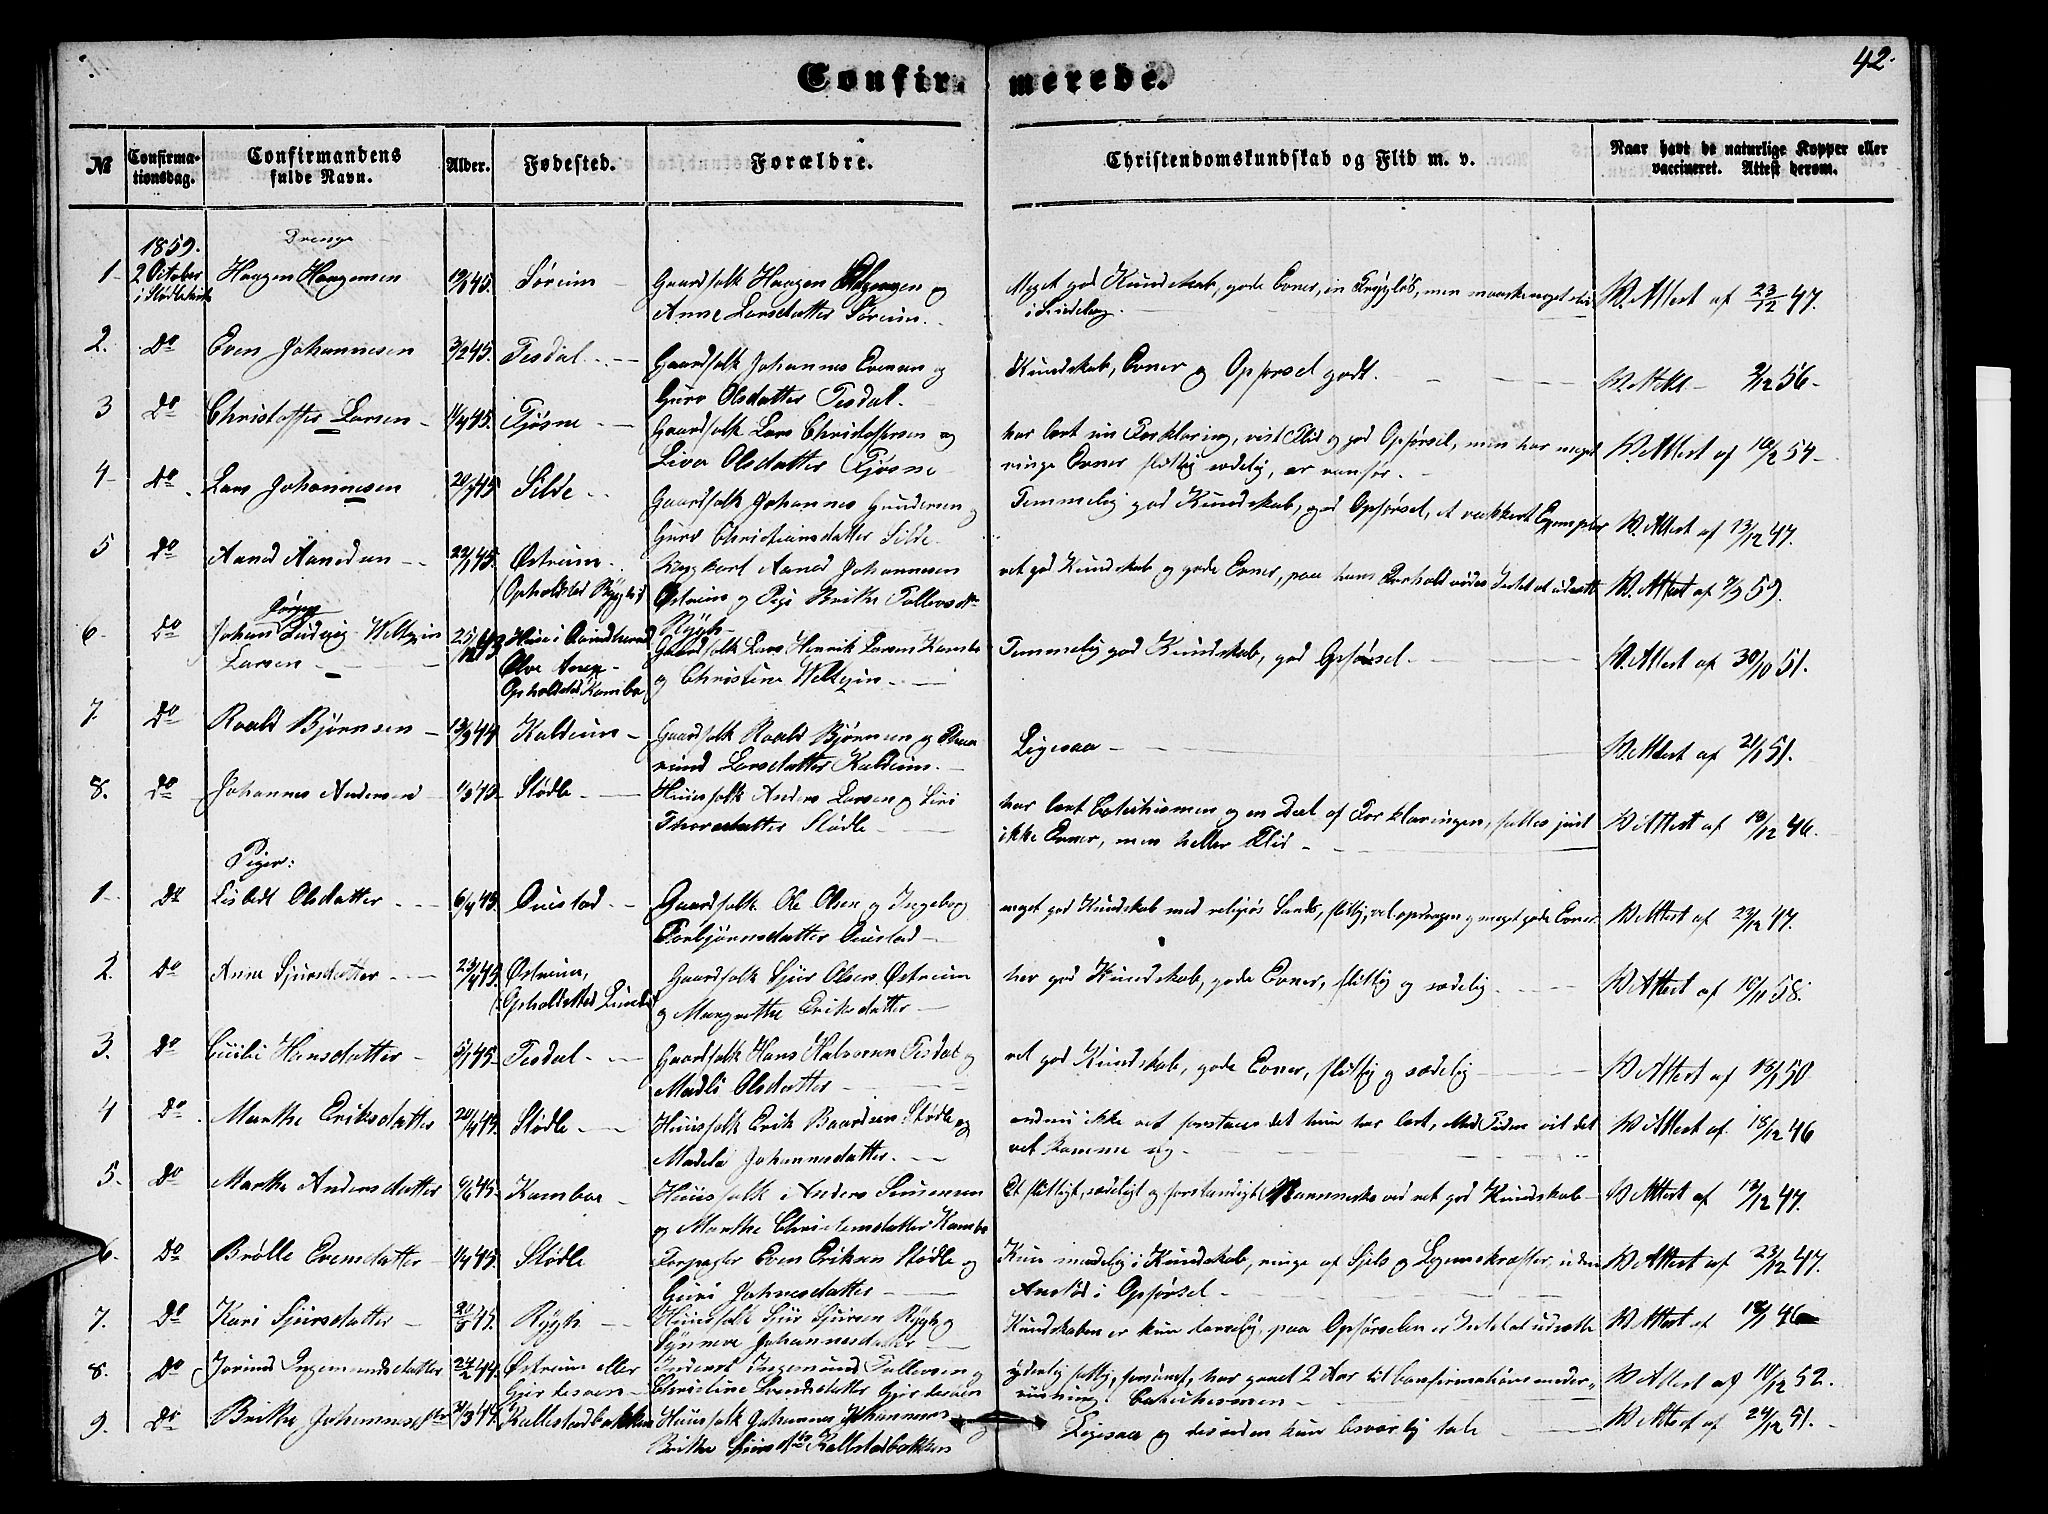 42.
Confirmerede.
№
Confirmationsdag.
Confirmandens fulde Navn.
Alder.
Fødested.
Forældre.
Christendomskundskab og Flid m. v.
Naar havt de naturlige Kopper eller vaccineret. Attest herom.
1859.
Drenge
1 2 October i Stødlekirke Haagen Haagensen 45. Søreim Gaardfolk Haagen Haagensen og
Anne Larsdatter Søreim. Meget god Kundskab, gode Evner, V. Attest af 23/12 47.
2. Do Even Johannesen 3/2 45. Tesdal Gaardfolk Johannes Evensen og
Guro Olsdatter Tesdal. Kundskab, Evner og Opførsel godt. V. Attest 9/12 56
3 Do Christoffer Larsen 45. Fjøsne Gaardfolk Lars Christoffersen og
Liva Olsdatter Fjøsne har lært sin Forklaring, vist Flid og god Opførsel, men har meget
ringe Evner flittig sædelig, er vanfør. V. Attest af 10/2 54
4 Do Lars Johannesen 45 Silde Gaardfolk Johannes Gundersen og
Guro Christiansdatter Silde Temmelig god Kundskab, god Opførsel, et vakkert Exempler V. Attest af 13/12 47.
5 Do Aamed Aamedsen 22/1 45. Østreim
Opholdsted Rygh Johannesen
Østreim og Pige Brithe Tollevsdtr
Rygh ret god Kundskab og gode Evner, paa hans Forhold vides Intet at udsætte V. Attest af 59.
6 Do Johan Jørgen Ludvig Weltzin
Larsen 25/12 43 Huse i Qvindherred
Ølve Annex
Opholdsted Kambe Gaardfolk Lars Henrik Larsen Kambe
og Christine Weltzin Temmelig god Kundskab, god Opførsel. V. Attest af 30/10 51.
7. Do Roald Bjørnsen 13/9 44 Kaldeim Gaardfolk Roald Bjørnsen og
Larsdatter Kaldeim. Ligesaa V. Attest af 21/1 51.
8. Do Johannes Andersen Stødle Huusfolk Anders Larsen og Siri
Thorsdatter Stødle har lært Catechismen og en Deel af Forklaringen, fattes just
ikke Evner, men heller Flid V. Attest af 18/12 46.
Piger:
1 Do Lisbet Olsdatter 6/4 45. Duestad Gaardfolk Ole Olsen og Ingeborg
Torbjørnsdatter Duestad meget god Kundskab med religiøs Sands, flittig, vel opdragen og meget gode Evner. V. Attest af 23/12 47.
2. Do Anne Sjursdatter 23/4 45. Østreim,
Opholdsted Lunde Gaardfolk Sjur Olsen Østreim
og Margrethe Eriksdatter har god Kundskab, gode Evner, flittig og sædelig V. Attest af 10/11 58.
3. Do Cicilie Hansdatter 5/1 45. Tesdal Gaardfolk Hans Halvorsen Tesdal og
Madli Olsdatter ret god Kundskab, gode Evner, flittig og sædelig V. Attest af 50
4 Do Marthe Eriksdatter 20/4 45. Stødle Huusfolk Erik Baardsen Stødle og
Madela Johannesdatter. endnu ikke ret forstaaet det hun har lært, Med Tiden vil det
vel komme sig V. Attest af 18/12 46
5. Do Marthe Andersdatter 6/6 45. Kamboe Huusfolk Anders Simensen
og Marthe Christensdatter Kambe Et flittigt, sædeligt og forstandigt Menneske ved ret god Kundskab V. Attest af 13/12 47.
6. Do Brølle Evensdatter 1/4 45. Stødle Forpagter Even Eriksen Stødle og
Guri Johannesdatter Kun maadelig i Kundskab, ringe af Sjels og Legemskræfter, uden
Anstød i Opførsel V. Attest af 23/12 47.
7. Do Kari Sjursdatter 45. Rygh Huusfolk Sjur Sjursen Rygh og
Synneve Johannesdatter Kundskaben er kun daarlig, paa Opførselen er Intet at udsætte V. Attest af 46
8. Do Jorund Ingemundsdatter 24/2 44. Østreim eller
Gjerdesveen Inderst Ingemund Tollevsen og
Christine Svendsdatter Gjerdesveen yderlig fattig, forsømt, har gaaet 2 Aar til Confirmationsunder-
visning. Catechismen V. Attest af 10/12 52.
9. Do Brithe Johannesdtr Kallestadbakken Huusfolk Johannes Johannesen
Brithe Sjursdtr Kallestadbakken Ligesaa og desuden kun besværlig tale V. Attest af 24/12 51.